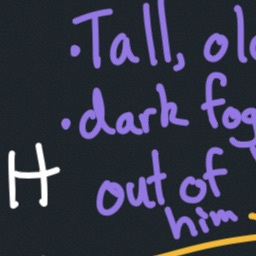 •Tall, ol
•dark fog
H out of
him